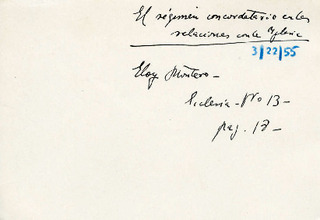 El régimen concordatario en las
relaciones con la Iglesia
3/22/55
Eloy Montero -
Ecclesia - Nº 13 -
pag. 17 -